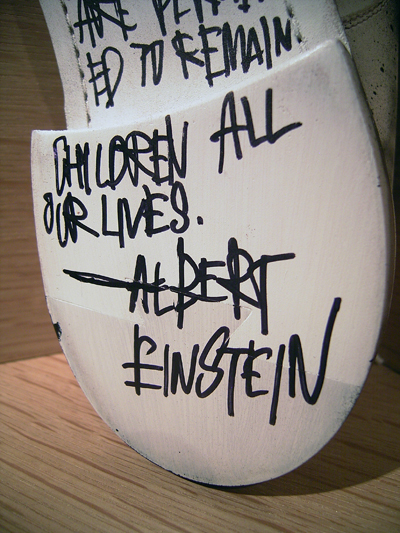 ARE PERMIT
ED TO REMAIN
CHILDREN ALL
OUR LIVES.
—ALBERT
EINSTEIN